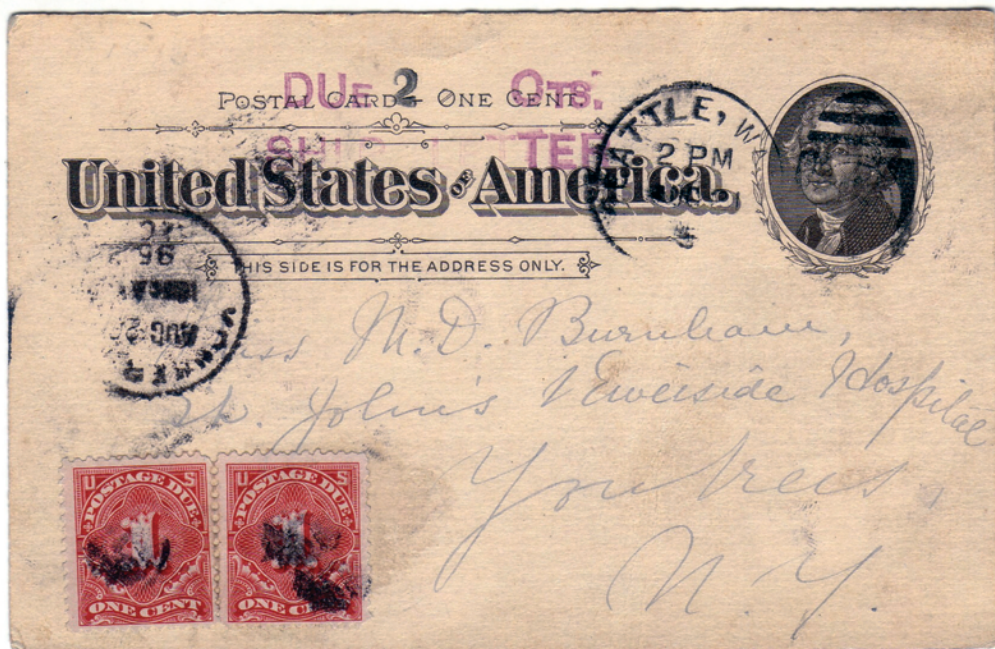 DUE 2 CTS.
POSTAL CARD - ONE CENT.
SHIP LETTER
United States of America.
THIS SIDE IS FOR THE ADDRESS ONLY.
SEATTLE, WA
2 PM
YONKER
AUG 2
95
Miss M. D. Burnham,
St. John's Riverside Hospital
Yonkers,
N. Y.
U S
POSTAGE DUE
1
ONE CENT
U S
POSTAGE DUE
1
ONE CE